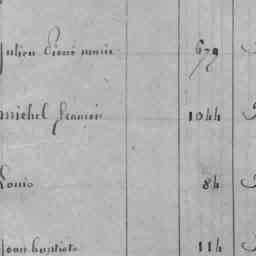 Julien Pierre marie 679
michel francois 1044
Louis 84
Jean baptiste 114